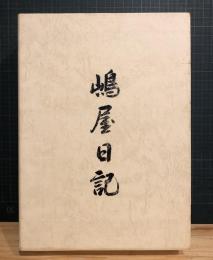 嶋屋日記